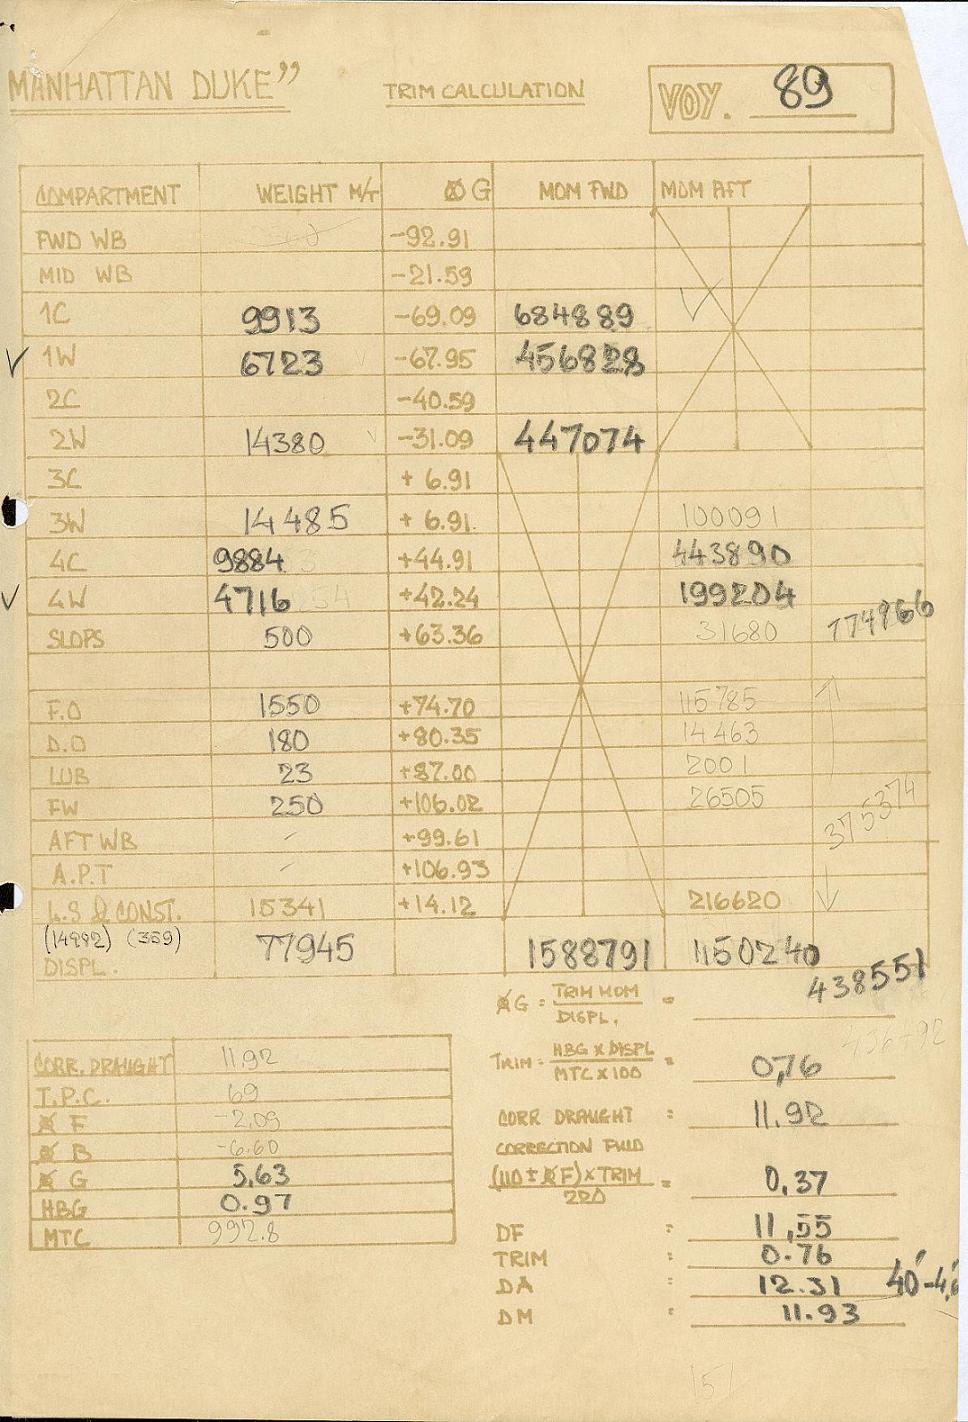 MANHATTAN DUKE"
TRIM CALCULATION
VOY. 89
COMPARTMENT WEIGHT M/T ⌀ G MOM FWD MOM AFT
FWD WB -92.91
MID WB -21.59
1C 9913 -69.09 684889
1W 6723 -67.95 456828
2C -40.59
2W 14380 -31.09 447074
3C + 6.91
3W 14485 + 6.91 100091
4C 9884 +44.91 443890
4W 4716 +42.24 199204
SLOPS 500 +63.36 31680 774966
F.O 1550 +74.70 115785
D.O 180 +80.35 14463
LUB 23 +87.00 2001
FW 250 +106.02 26505 375374
AFT WB - +99.61
A.P.T - +106.93
L.S & CONST. 15341 +14.12 216620
(14992) (359)
DISPL. 77945 1588791 1150240
438551
⌀G = TRIM MOM / DISPL. =
TRIM = HBG X DISPL / MTC X 100 = 0,76
CORR DRAUGHT : 11.92
CORRECTION FWD
(110 ± ⌀F) X TRIM / 220 = 0,37
DF : 11,55
TRIM : 0.76
DA : 12.31
DM : 11.93
CORR. DRAUGHT 11.92
T.P.C. 69
⌀ F -2,09
⌀ B -6.60
⌀ G 5,63
HBG 0.97
MTC 992.8